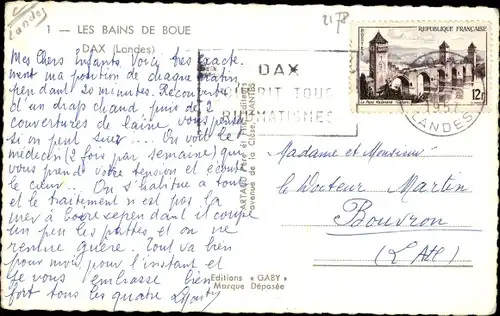 Landes
2178
1 — LES BAINS DE BOUE
DAX (Landes)
Mes Chers Enfants. Voici très exacte
ment ma position de chaque matin
pendant 20 minutes. Recouverte
d'un drap chaud puis de 2
couvertures de laine vous pensez
si on peut suer... On voit le
médecin (2 fois par semaine) qui
vous prend votre tension et écoute
le cœur... On s'habitue a tout
et le traitement n'est pas la
mer à boire cependant il coupe
un peu les pattes et on ne
remue guère. Tout va bien
pour moi pour l'instant et
je vous embrasse bien
fort tous les quatre
DAX
GUERIT TOUS
RHUMATISMES
POSTES
REPUBLIQUE FRANÇAISE
Le Pont Valentré Cahors
12F
1957
LANDES
ARTAUD Père et Fils Editeurs
avenue de la Close NANTES
Editions « GABY »
Marque Déposée
Madame et Monsieur
le Docteur Martin
Bouvron
(L. Atl)